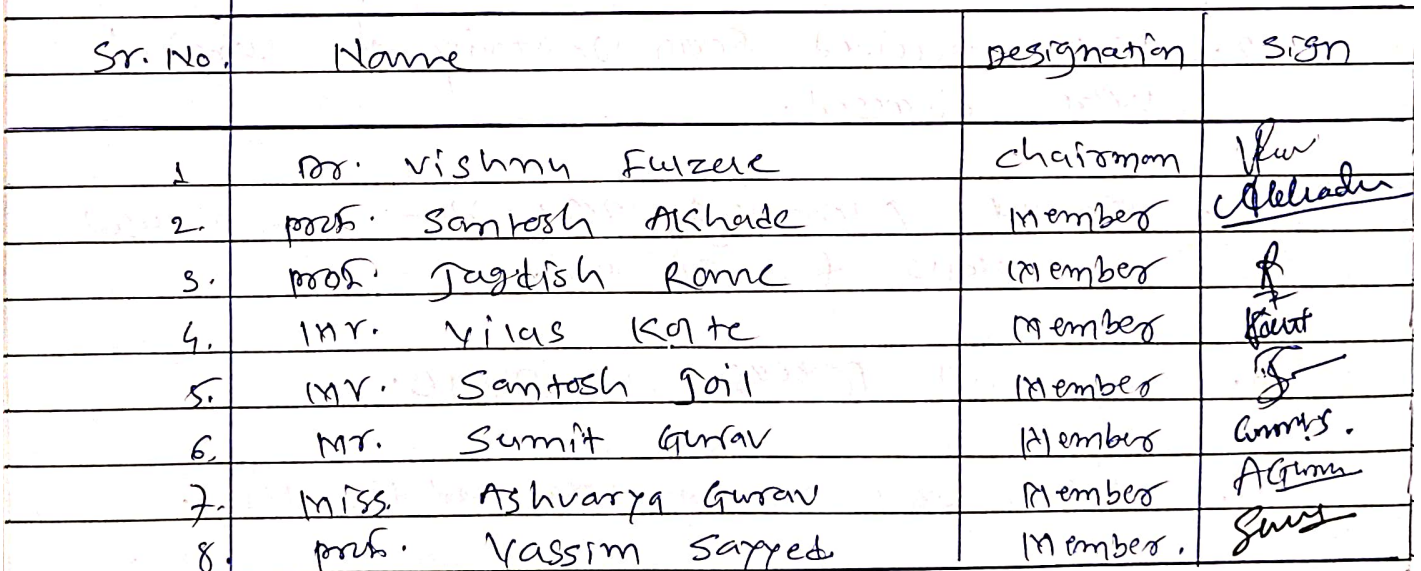 Sr. No. Name Designation Sign
1 Dr. Vishnu Fulzele Chairman
2. Prof. Santosh Akhade Member
3. Prof. Jagdish Rane Member
4. Mr. Vilas Kolte Member
5. Mr. Santosh Joil Member
6. Mr. Sumit Gurav Member
7. Miss. Ashvarya Gurav Member
8. Prof. Vassim Sayyed Member.